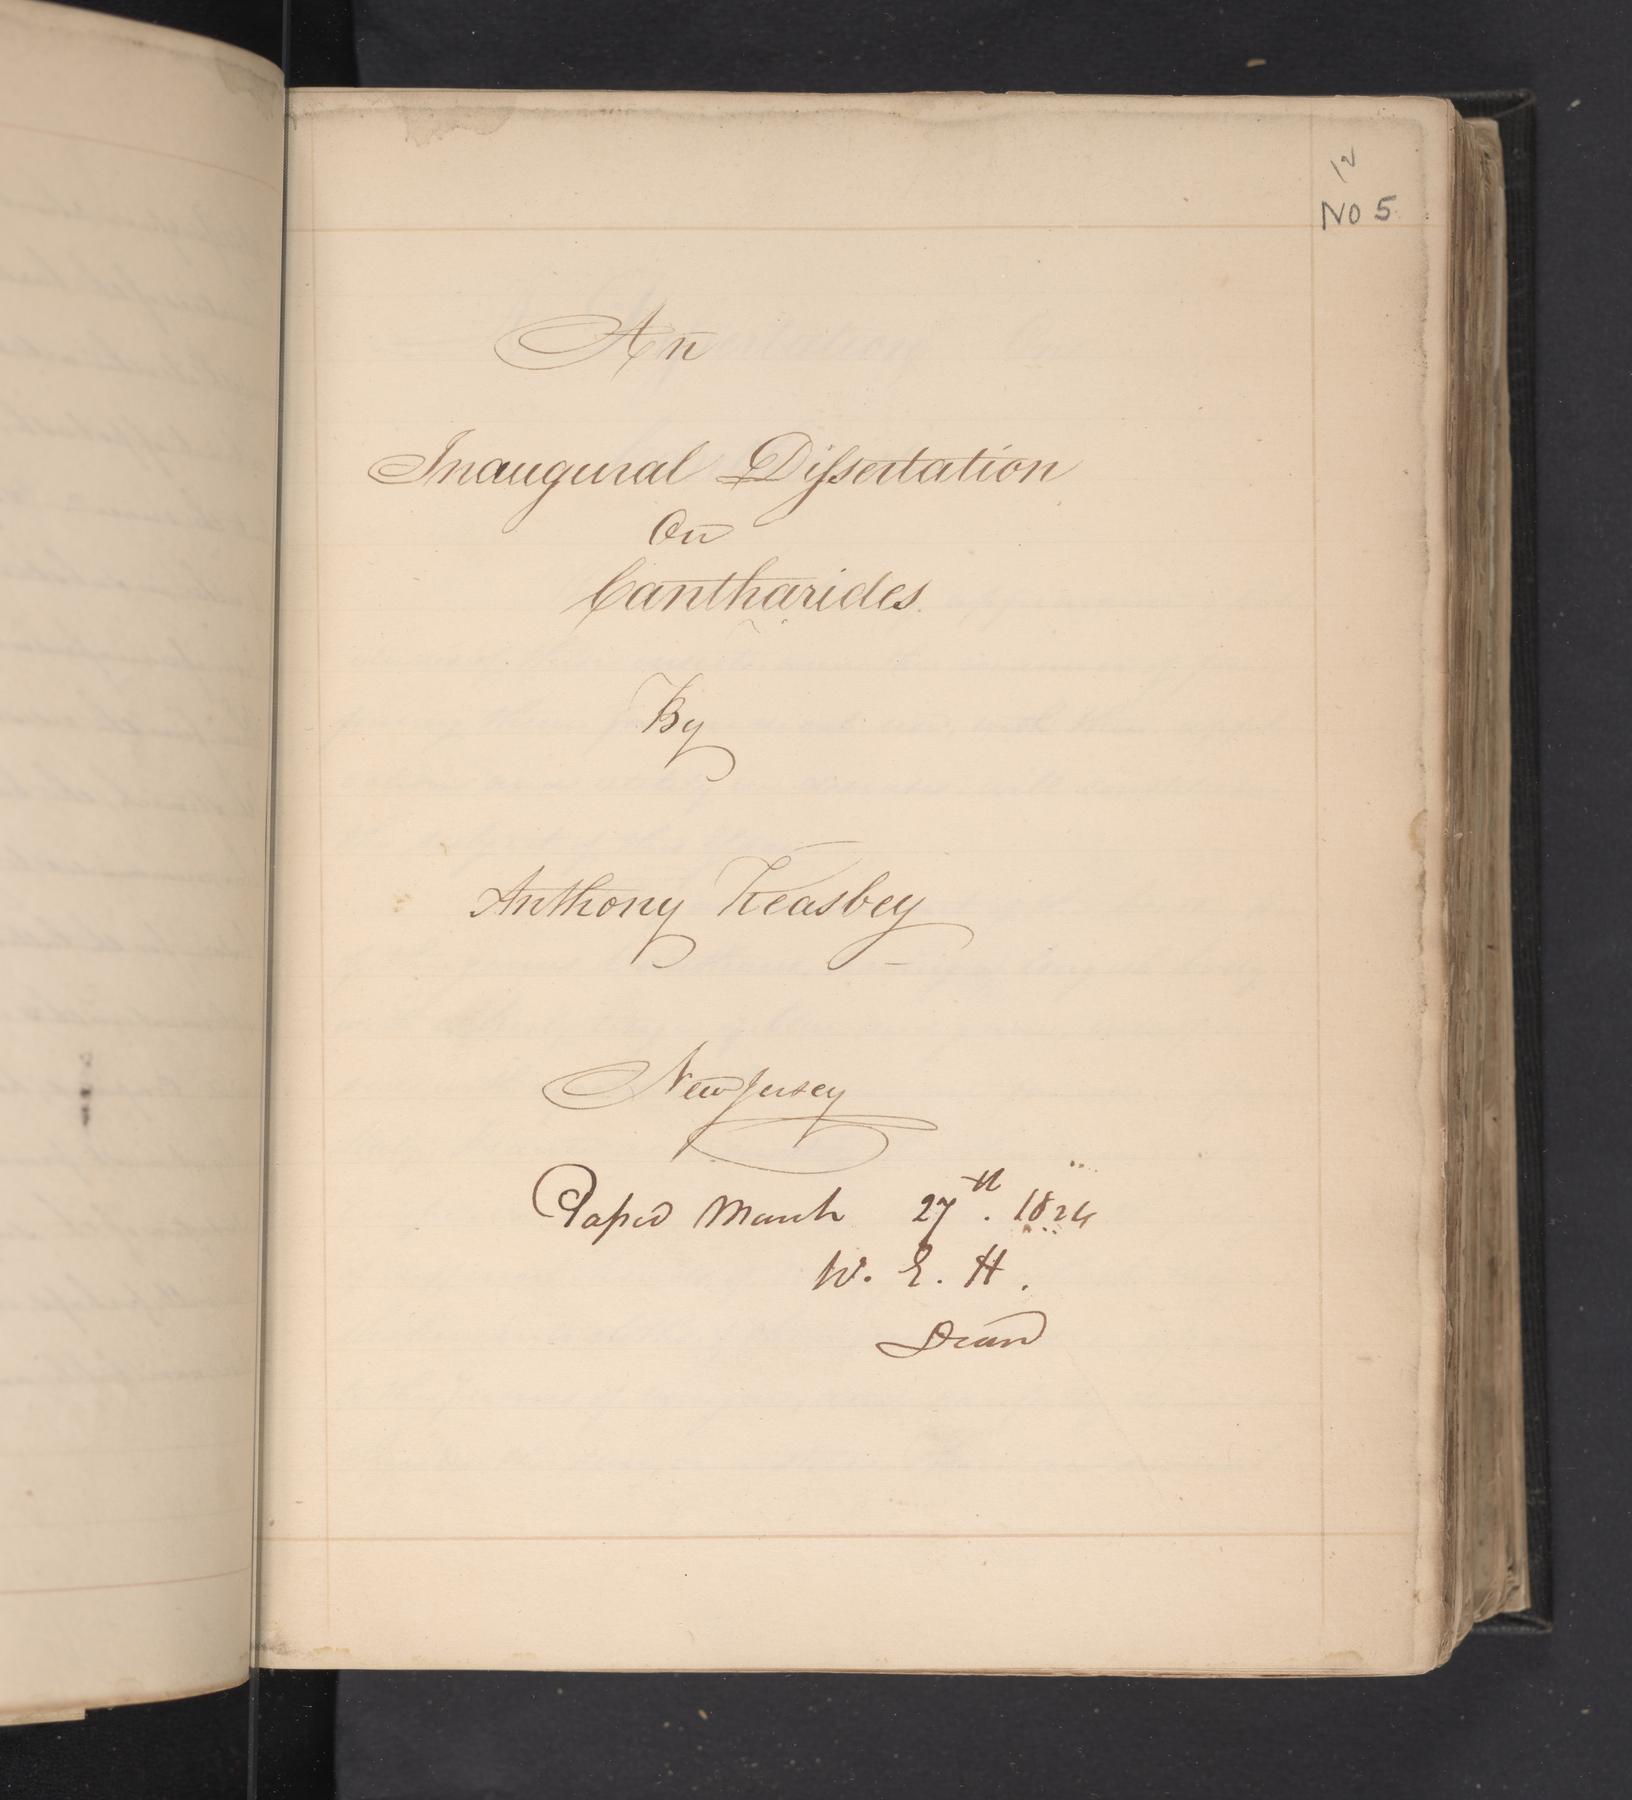 12
No 5
An
Inaugural Dissertation
On
Cantharides.
By
Anthony Keasbey
New Jersey
Passed March 27th. 1824
W. E. H.
Dean